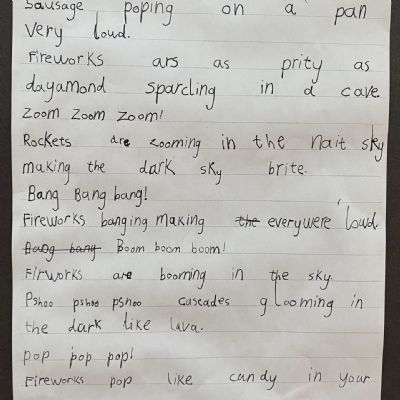 Sausage poping on a pan
Very loud.
Fireworks ars as prity as
dayamond sparcling in a cave
Zoom Zoom Zoom!
Rockets are zooming in the nait sky
making the dark sky brite.
Bang Bang bang!
Fireworks banging making the everywere loud.
Bang bang Boom boom boom!
Firworks are booming in the sky.
Pshoo pshoo pshoo cascades glooming in
the dark like lava.
pop pop pop!
Fireworks pop like candy in your